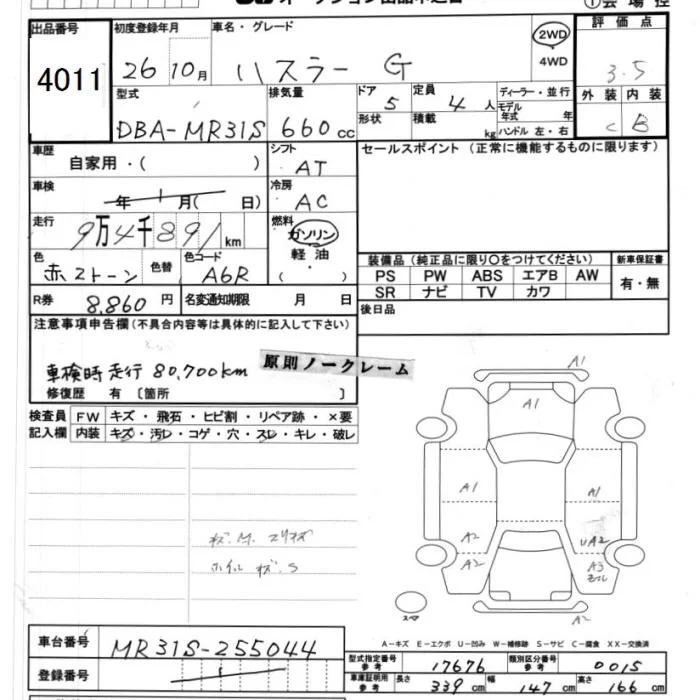 ① 会 場 控
出品番号
4011
初度登録年月
26 10月
車名・グレード
ハスラー G
2WD
4WD
評 価 点
3.5
型式
DBA-MR31S
排気量
660 cc
ドア
5
定員
4 人
形状
積載
kg
ディーラー・並 行
モデル年式 年
ハンドル 左・右
外 装 内 装
C B
車歴
自家用・( )
シフト
AT
セールスポイント (正常に機能するものに限ります)
車検
年 月( 日)
冷房
AC
走行
9万4千891km
燃料
ガソリン
軽 油
色
赤2トーン
色替
色コード
A6R
R券
8,860 円
名変通知期限 月 日
装備品 (純正品に限り○をつけてください)
新車保証書
PS PW ABS エアB AW
SR ナビ TV カワ
有・無
後日品
注意事項申告欄 (不具合内容等は具体的に記入して下さい)
車検時走行 80,700km
原則ノークレーム
修復歴 有 〔箇所 〕
検査員記入欄
FW キズ・飛石・ヒビ割・リペア跡・×要
内装 キズ・汚レ・コゲ・穴・スレ・キレ・破レ
ホイルキズ.S
A1
A1
A1
A1
A2
UA2
A2
A3
スペア
A2
A-キズ E-エクボ U-凹み W-補修跡 S-サビ C-腐食 XX-交換済
車台番号
MR31S-255044
登録番号
型式指定番号 参考
17676
類別区分番号 参考
0015
車庫証明用 参考
長さ 339 cm 幅 147 cm 高さ 166 cm